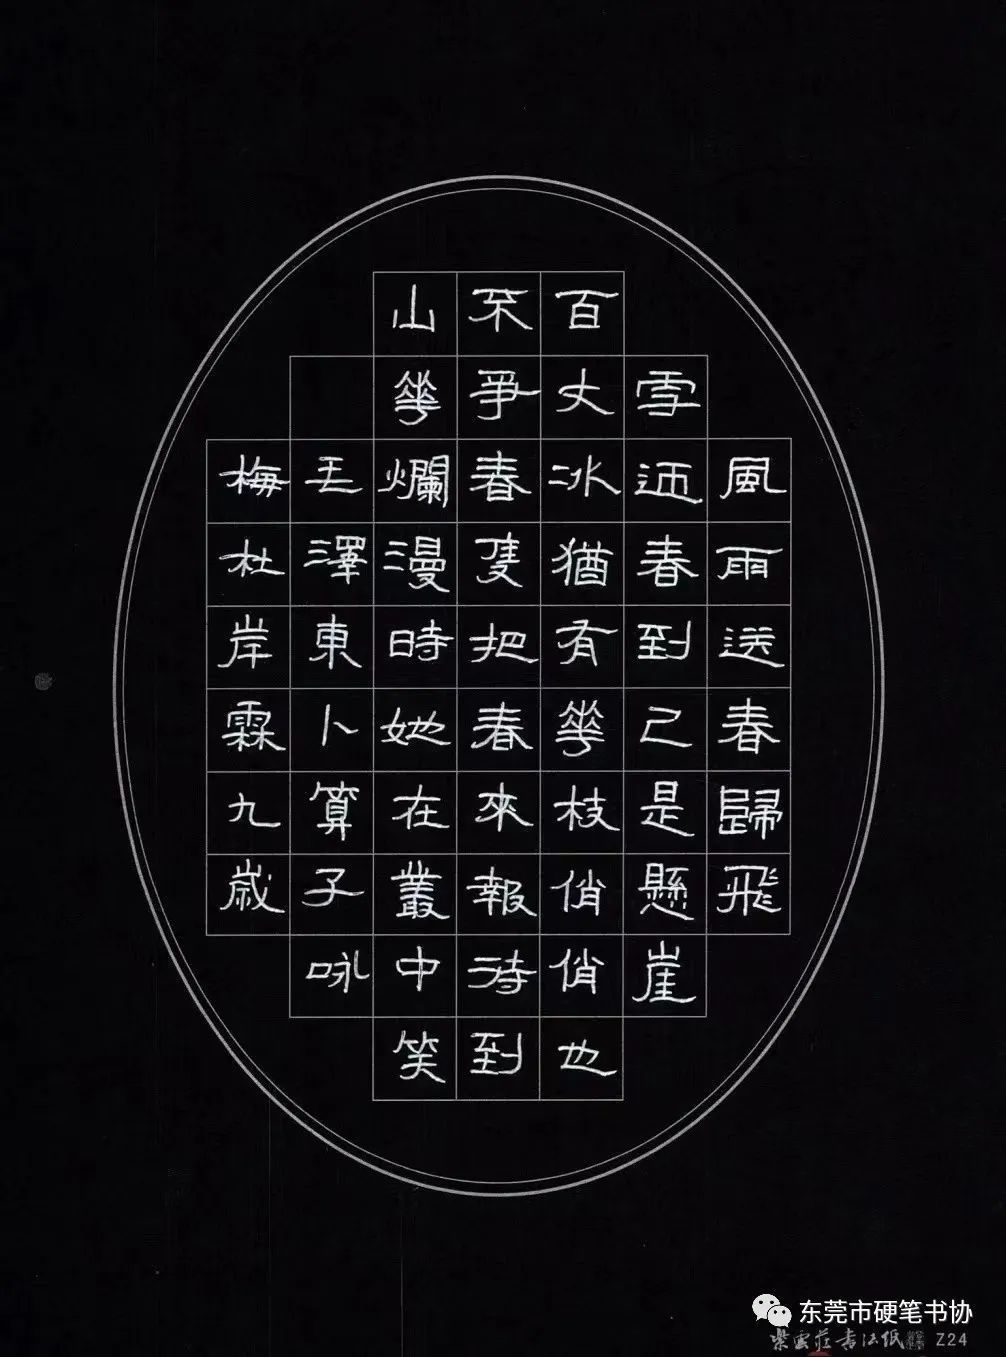 風雨送春歸飛
雪迎春到已是懸崖
百丈冰猶有華枝俏俏也
不爭春隻把春來報待到
山華爛漫時她在叢中笑
毛澤東卜算子咏
梅杜岸霖九歲
东莞市硬笔书协
紫雲莊書法紙 Z24